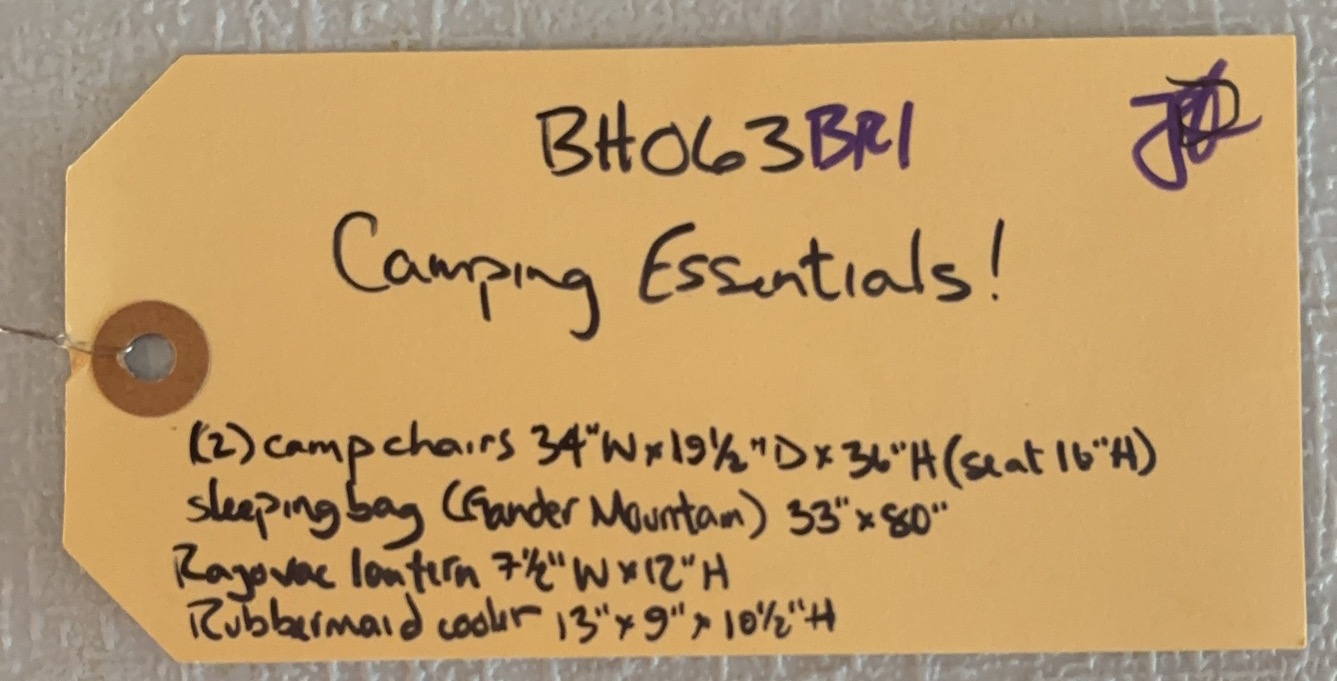 BH063BR1
Camping Essentials!
(2) camp chairs 34"W x 19½"D x 36"H (seat 16"H)
sleeping bag (Gander Mountain) 33" x 80"
Rayovac lantern 7½"W x 12"H
Rubbermaid cooler 13" x 9" x 10½"H